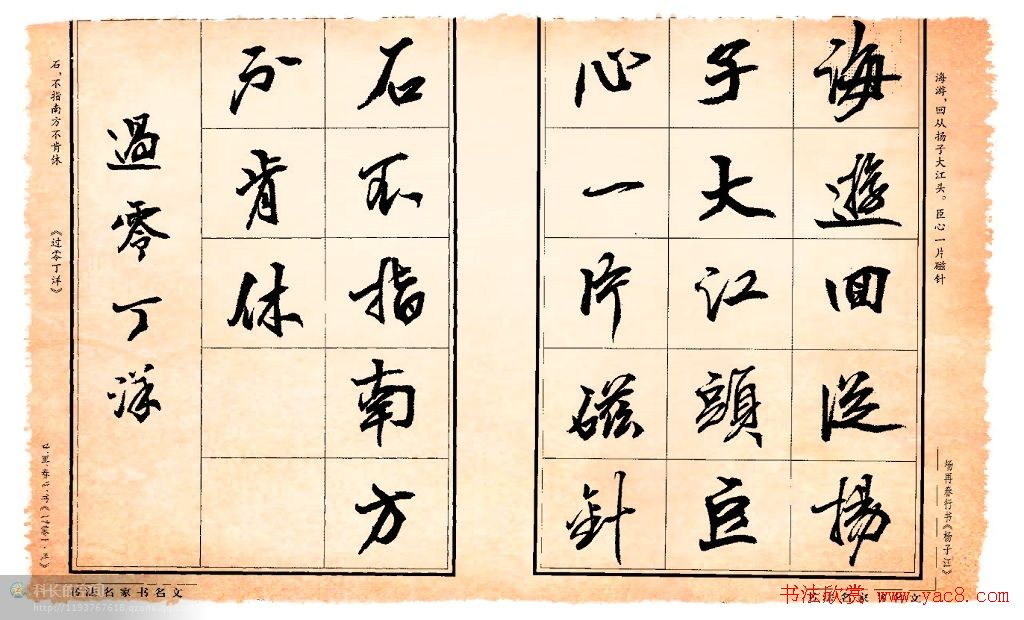 海游,回从扬子大江头。臣心一片磁针
杨再春行书《杨子江》
海遊回從揚
子大江頭臣
心一片磁針
石不指南方
不肯休
過零丁洋
石,不指南方不肯休
《过零丁洋》
书法名家书名文
科长的空间
http://1193767618.qzone
书法欣赏 www.yac8.com